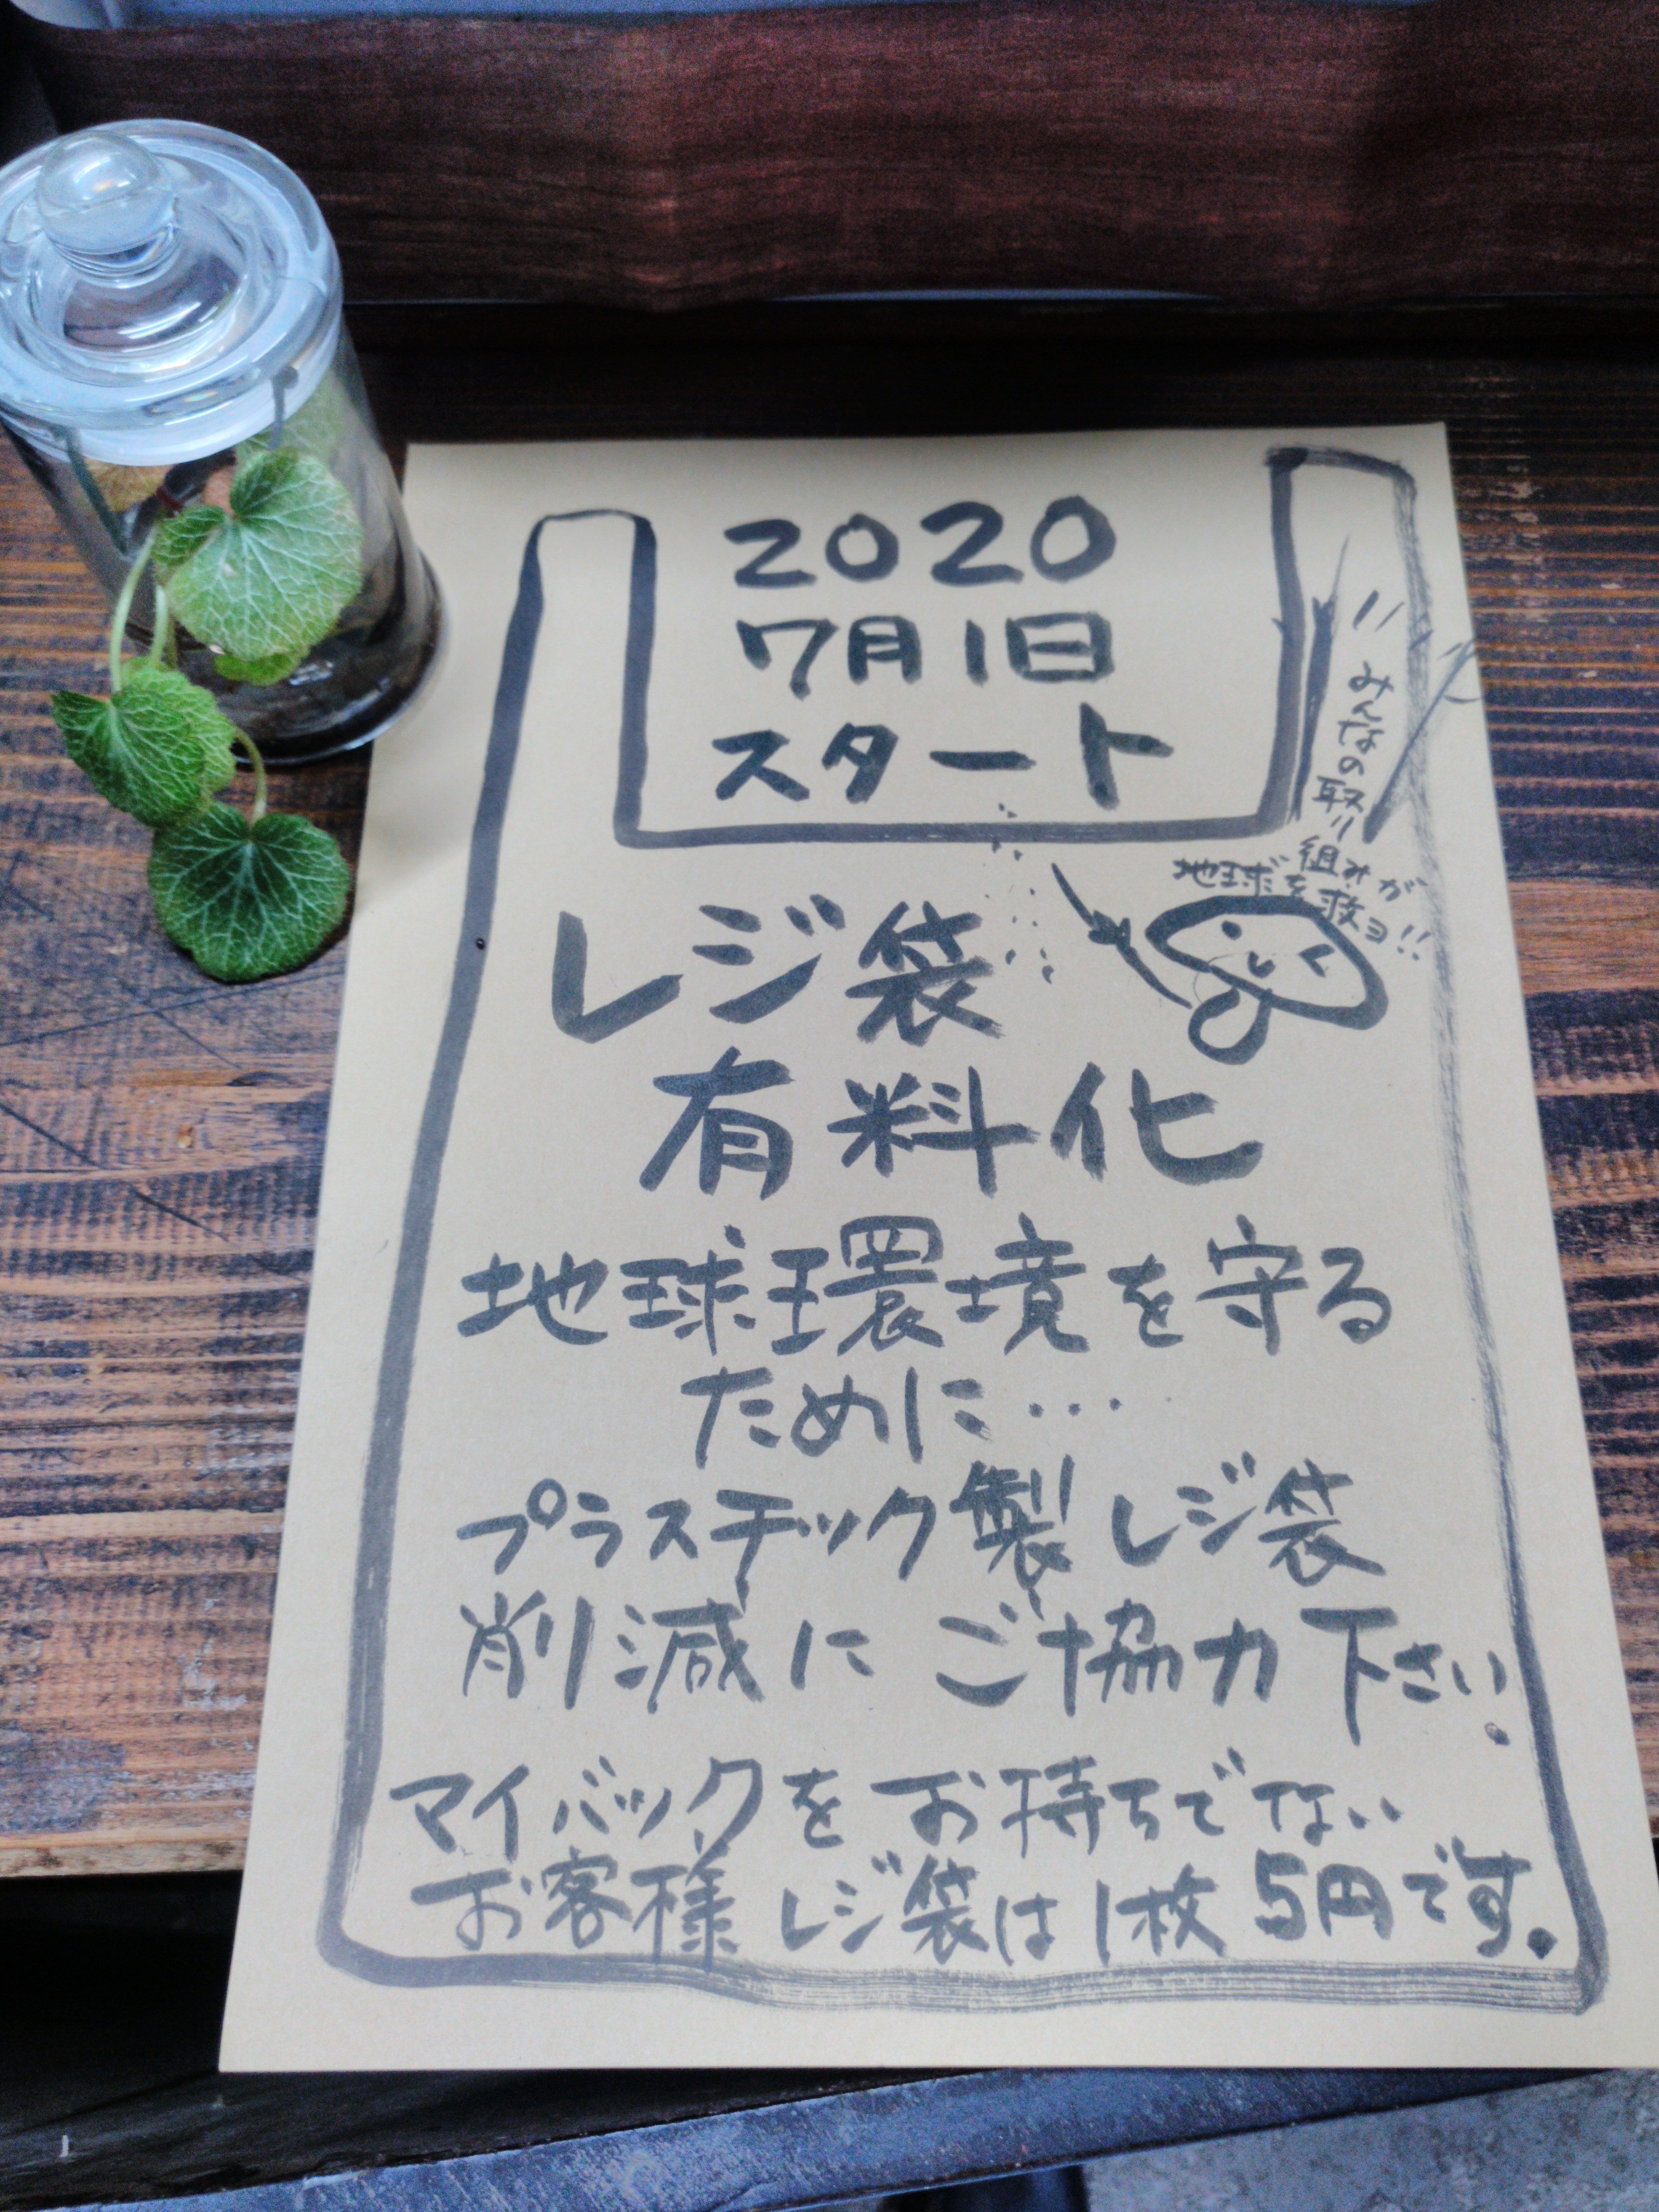 2020
7月1日
スタート
みんなの取り
組みが
地球を救ヨ!!
レジ袋
有料化
地球環境を守る
ために…
プラスチック製レジ袋
削減にご協力下さい。
マイバックをお持ちでない
お客様レジ袋は1枚5円です。